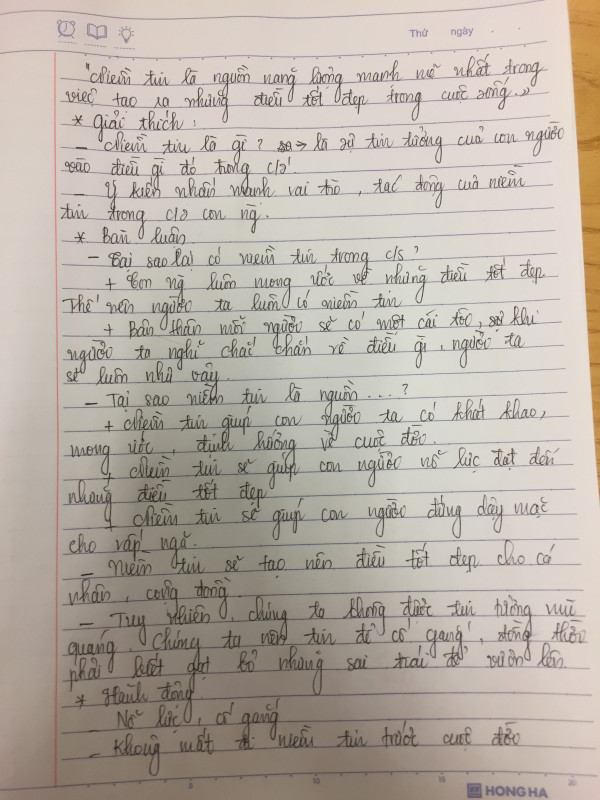 Thứ ngày
"Niềm tin là nguồn năng lượng mạnh mẽ nhất trong
việc tạo ra những điều tốt đẹp trong cuộc sống."
* Giải thích:
- Niềm tin là gì? → là sự tin tưởng của con người
vào điều gì đó trong c/s.
- Ý kiến nhấn mạnh vai trò, tác động của niềm
tin trong c/s con ng.
* Bàn luận
- Tại sao lại có niềm tin trong c/s?
+ Con ng luôn mong ước về những điều tốt đẹp
Thế nên người ta luôn có niềm tin
+ Bản thân mỗi người sẽ có một cái tôi, khi
người ta nghĩ chắc chắn về điều gì, người ta
sẽ luôn như vậy.
- Tại sao niềm tin là nguồn....?
+ Niềm tin giúp con người ta có khát khao,
mong ước, định hướng về cuộc đời.
+ Niềm tin sẽ giúp con người nỗ lực đạt đến
những điều tốt đẹp
+ Niềm tin sẽ giúp con người đứng dậy mặc
cho vấp ngã.
- Niềm tin sẽ tạo nên điều tốt đẹp cho cá
nhân, cộng đồng.
- Tuy nhiên, chúng ta không được tin tưởng mù
quáng. Chúng ta nên tin để cố gắng, đồng thời
phải gọt bỏ những sai trái để vươn lên
* Hành động
- Nỗ lực, cố gắng
- Không mất niềm tin trước cuộc đời
5 10 15 20
HONG HA